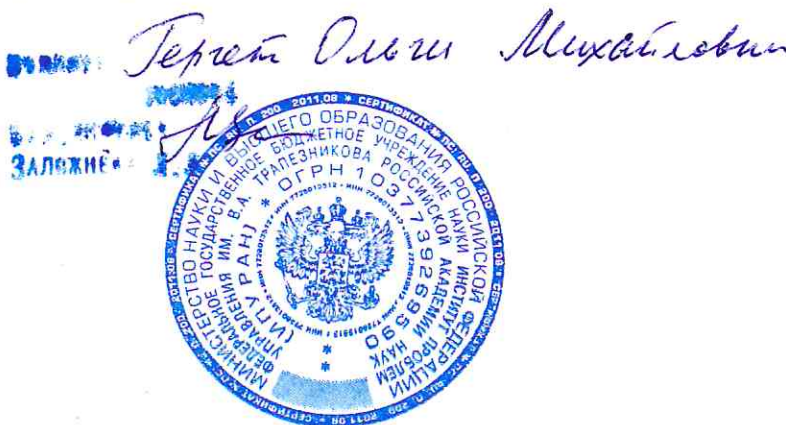 Гергет Ольги Михайловны
ЗАЛОЖНЕВ
* СЕРТИФИКАТ № ПС. RU. П. 200 2011.08 * СЕРТИФИКАТ № ПС. RU. П. 200 2011.08
МИНИСТЕРСТВО НАУКИ И ВЫСШЕГО ОБРАЗОВАНИЯ РОССИЙСКОЙ ФЕДЕРАЦИИ
ФЕДЕРАЛЬНОЕ ГОСУДАРСТВЕННОЕ БЮДЖЕТНОЕ УЧРЕЖДЕНИЕ НАУКИ ИНСТИТУТ ПРОБЛЕМ
УПРАВЛЕНИЯ ИМ. В.А. ТРАПЕЗНИКОВА РОССИЙСКОЙ АКАДЕМИИ НАУК
(ИПУ РАН) * ОГРН 1037739269590 * *